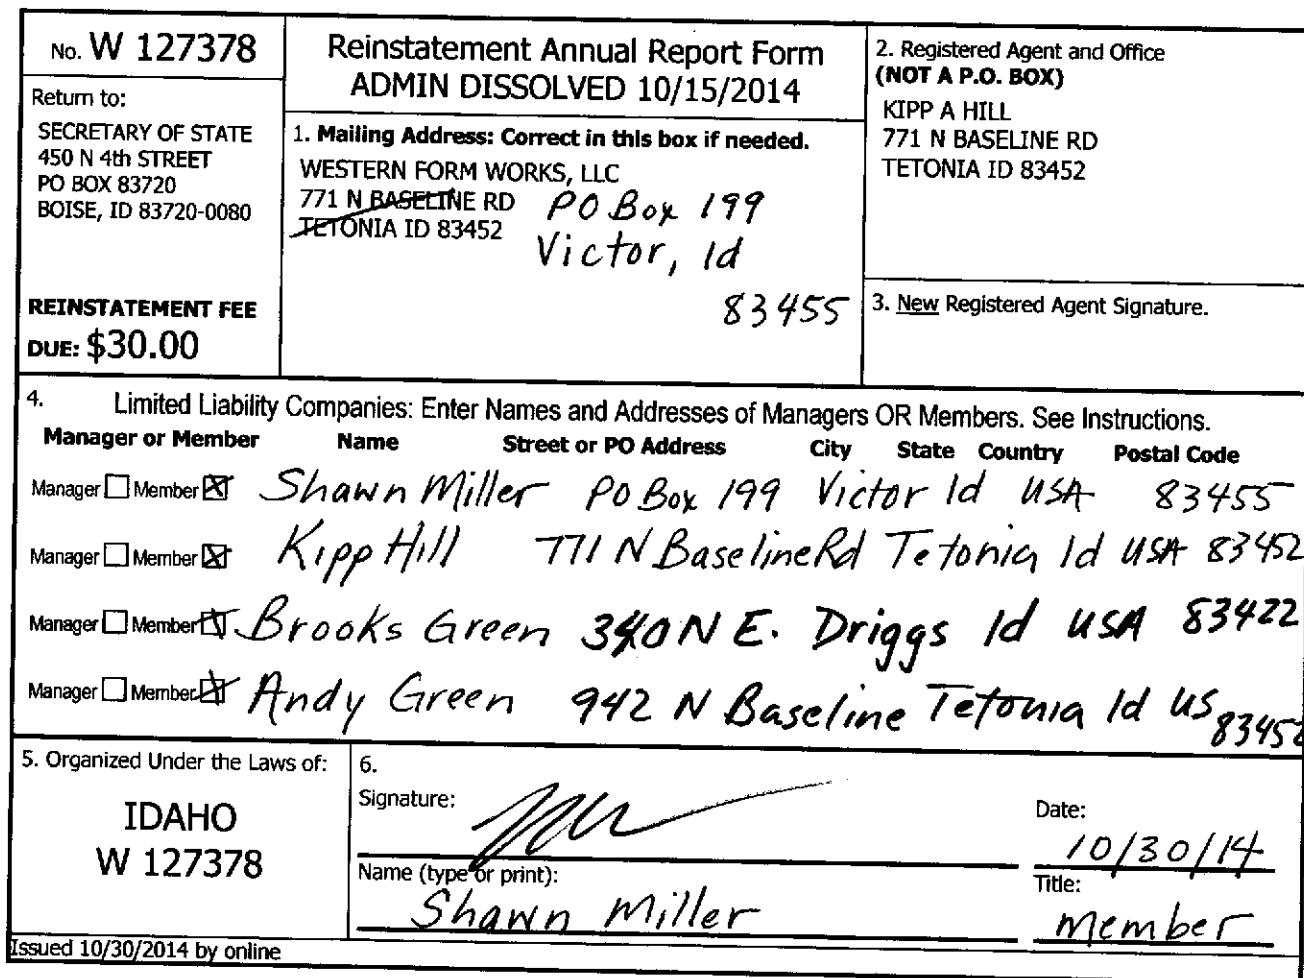 No. W 127378
Return to:
SECRETARY OF STATE
450 N 4th STREET
PO BOX 83720
BOISE, ID 83720-0080
REINSTATEMENT FEE
DUE: $30.00
Reinstatement Annual Report Form
ADMIN DISSOLVED 10/15/2014
1. Mailing Address: Correct in this box if needed.
WESTERN FORM WORKS, LLC
771 N BASELINE RD PO Box 199
TETONIA ID 83452 Victor, Id
83455
2. Registered Agent and Office
(NOT A P.O. BOX)
KIPP A HILL
771 N BASELINE RD
TETONIA ID 83452
3. New Registered Agent Signature.
4. Limited Liability Companies: Enter Names and Addresses of Managers OR Members. See Instructions.
Manager or Member Name Street or PO Address City State Country Postal Code
Manager Member Shawn Miller PO Box 199 Victor Id USA 83455
Manager Member Kipp Hill 771 N Baseline Rd Tetonia Id USA 83452
Manager Member Brooks Green N E. Driggs Id USA 83422
Manager Member Andy Green 942 N Baseline Tetonia Id US 83452
5. Organized Under the Laws of:
IDAHO
W 127378
6.
Signature:
Date:
10/30/14
Name (type or print):
Shawn Miller
Title:
member
Issued 10/30/2014 by online